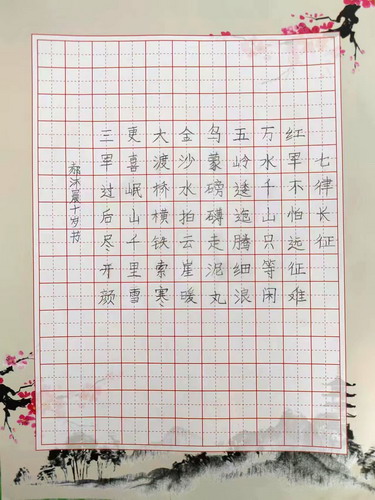 七律长征
红军不怕远征难
万水千山只等闲
五岭逶迤腾细浪
乌蒙磅礴走泥丸
金沙水拍云崖暖
大渡桥横铁索寒
更喜岷山千里雪
三军过后尽开颜
沐宸十岁